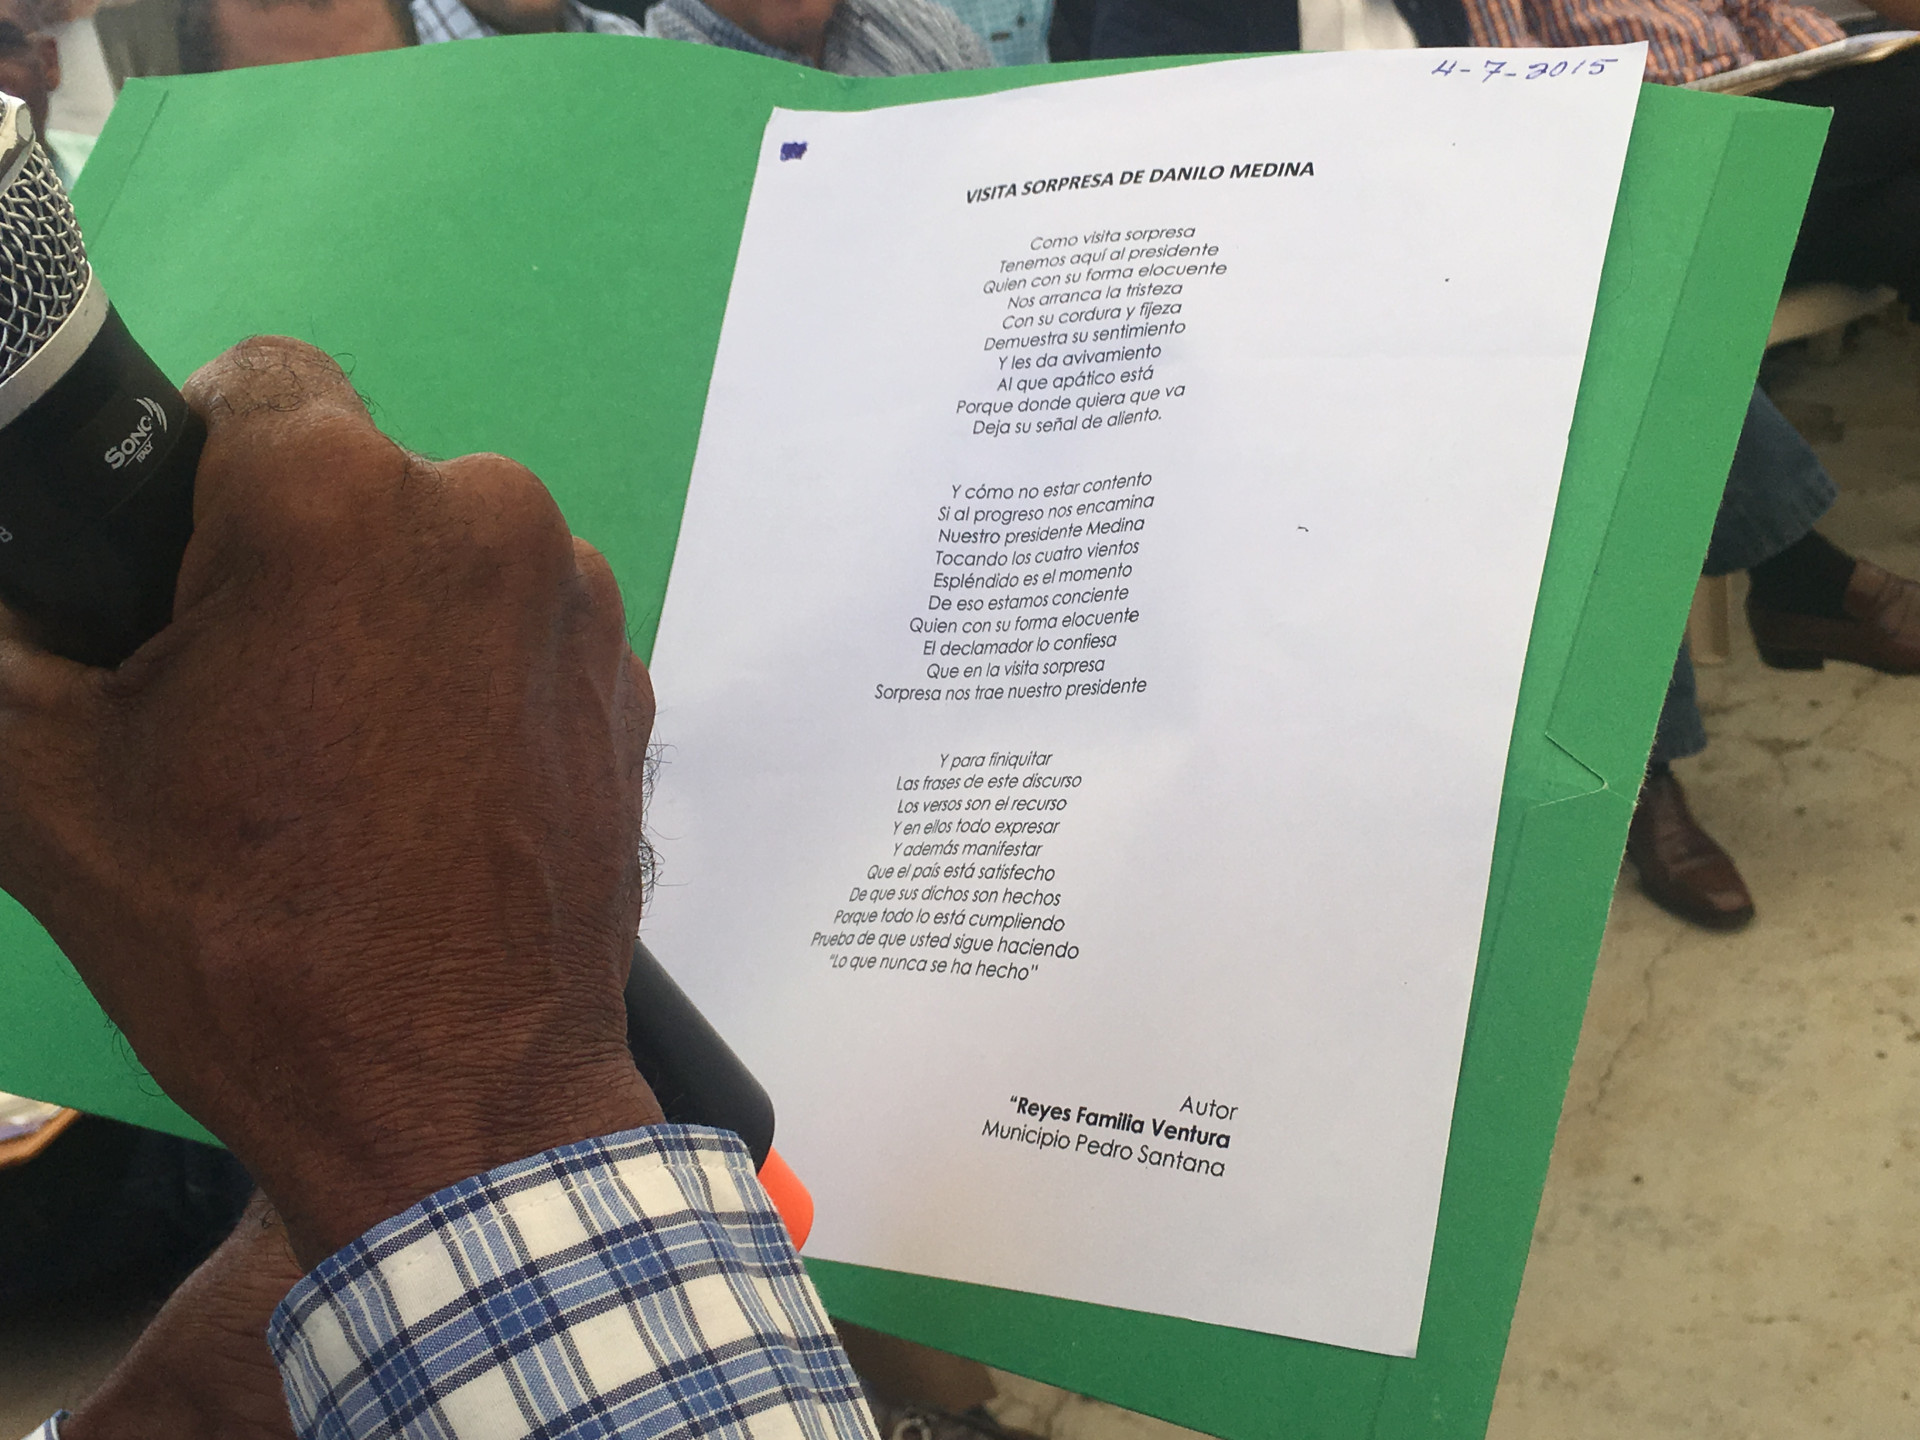 4-7-2015
VISITA SORPRESA DE DANILO MEDINA
Como visita sorpresa
Tenemos aquí al presidente
Quien con su forma elocuente
Nos arranca la tristeza
Con su cordura y fijeza
Demuestra su sentimiento
Y les da avivamiento
Al que apático está
Porque donde quiera que va
Deja su señal de aliento.
Y cómo no estar contento
Si al progreso nos encamina
Nuestro presidente Medina
Tocando los cuatro vientos
Espléndido es el momento
De eso estamos conciente
Quien con su forma elocuente
El declamador lo confiesa
Que en la visita sorpresa
Sorpresa nos trae nuestro presidente
Y para finiquitar
Las frases de este discurso
Los versos son el recurso
Y en ellos todo expresar
Y además manifestar
Que el país está satisfecho
De que sus dichos son hechos
Porque todo lo está cumpliendo
Prueba de que usted sigue haciendo
"Lo que nunca se ha hecho"
Autor
"Reyes Familia Ventura
Municipio Pedro Santana
SONO
ITALY